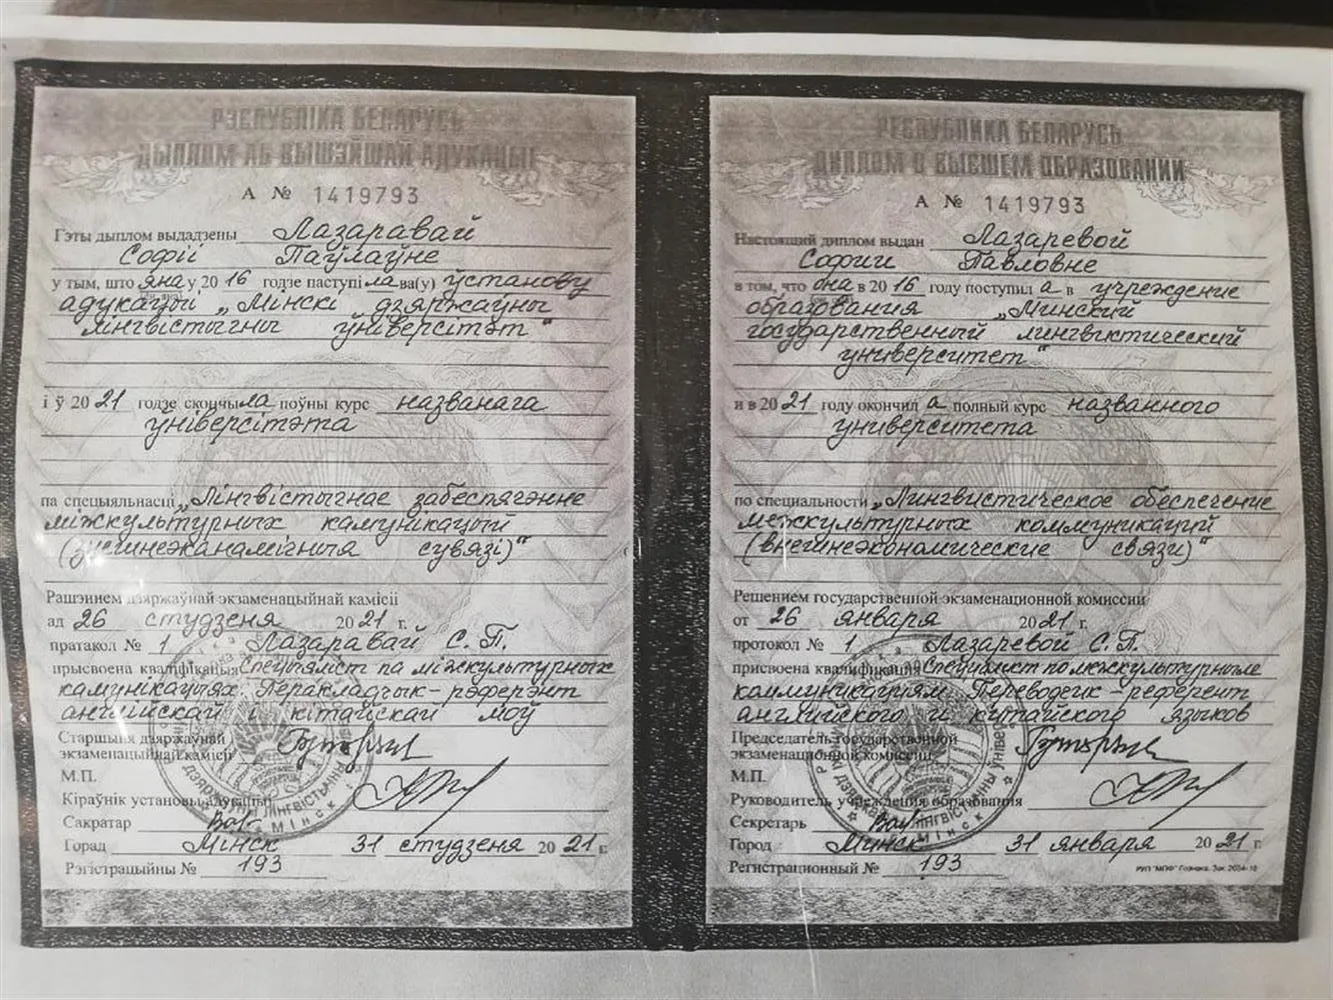 РЭСПУБЛІКА БЕЛАРУСЬ
ДЫПЛОМ АБ ВЫШЭЙШАЙ АДУКАЦЫІ
А № 1419793
Гэты дыплом выдадзены Лазаравай
Софіі Паўлаўне
у тым, што яна у 2016 годзе паступіла ва(у) ўстанову
адукацыі „Мінскі дзяржаўны
лінгвістычны ўніверсітэт“
і ў 2021 годзе скончыла поўны курс названага
ўніверсітэта
па спецыяльнасці „Лінгвістычнае забеспячэнне
міжкультурных камунікацый
(знешнеэканамічныя сувязі)“
Рашэннем дзяржаўнай экзаменацыйнай камісіі
ад 26 студзеня 2021 г.
пратакол № 1 Лазаравай С.П.
прысвоена кваліфікацыя Спецыяліст па міжкультурных
камунікацыях. Перакладчык-рэферэнт
англійскай і кітайскай моў
Старшыня дзяржаўнай
экзаменацыйнай камісіі
М.П.
Кіраўнік установы адукацыі
Сакратар
Горад Мінск 31 студзеня 2021 г.
Рэгістрацыйны № 193
РЕСПУБЛИКА БЕЛАРУСЬ
ДИПЛОМ О ВЫСШЕМ ОБРАЗОВАНИИ
А № 1419793
Настоящий диплом выдан Лазаревой
Софии Павловне
в том, что она в 2016 году поступила в учреждение
образования „Минский
государственный лингвистический
университет“
и в 2021 году окончила полный курс названного
университета
по специальности „Лингвистическое обеспечение
межкультурных коммуникаций
(внешнеэкономические связи)“
Решением государственной экзаменационной комиссии
от 26 января 2021 г.
протокол № 1 Лазаревой С.П.
присвоена квалификация Специалист по межкультурным
коммуникациям. Переводчик-референт
английского и китайского языков
Председатель государственной
экзаменационной комиссии
М.П.
Руководитель учреждения образования
Секретарь
Город Минск 31 января 2021 г.
Регистрационный № 193